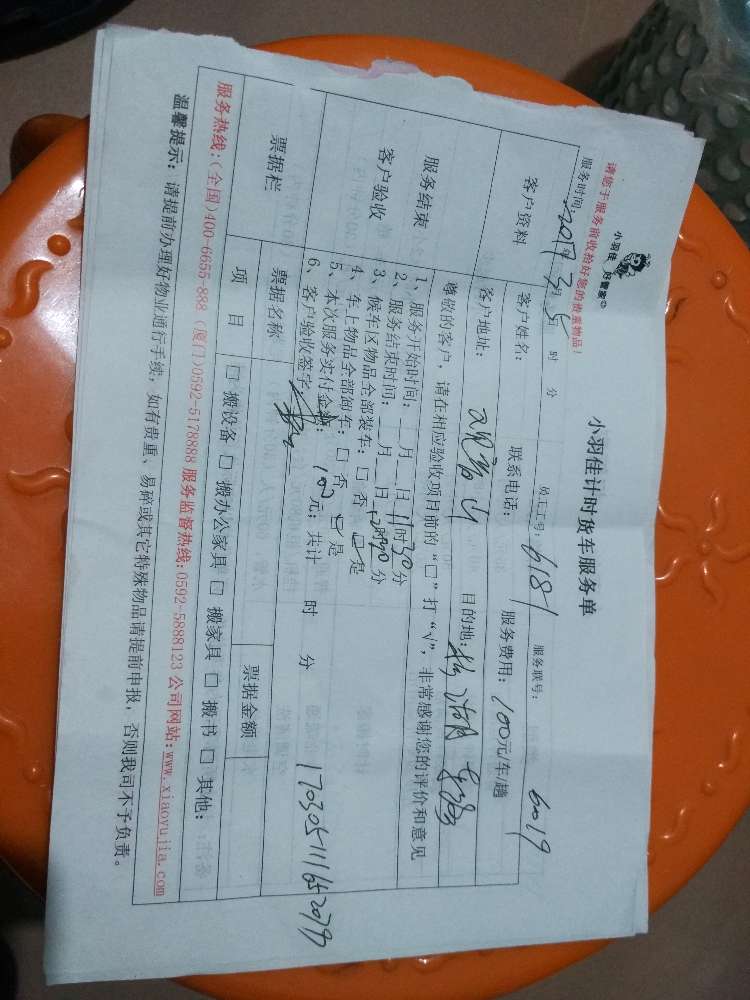 小羽佳 好管家
请您于服务前收拾好您的贵重物品！
小羽佳计时货车服务单
服务时间：2017年3月5日 时 分 员工工号：6181 服务联号：6019
客户资料
客户姓名： 联系电话： 服务费用：100元/车/趟
客户地址：观音山 目的地：
尊敬的客户，请在相应验收项目前的“□”打“√”，非常感谢您的评价和意见
服务结束
客户验收
1、服务开始时间：__月__日11时30分
2、服务结束时间：__月__日12时30分
3、候车区物品全部装车：□ 否 □ 是
4、车上物品全部卸车：□ 否 □ 是
5、本次服务实付金额：100元；共计 时 分
6、客户验收签字：
票据栏
票据名称 票据金额
项目 □ 搬设备 □ 搬办公家具 □ 搬家具 □ 搬书 □ 其他：
服务热线：（全国）400-6655-888（厦门）0592-5178888 服务监督热线：0592-5888123 公司网站：www.xiaoyujia.com
温馨提示：请提前办理好物业通行手续，如有贵重、易碎或其它特殊物品请提前申报，否则我司不予负责。